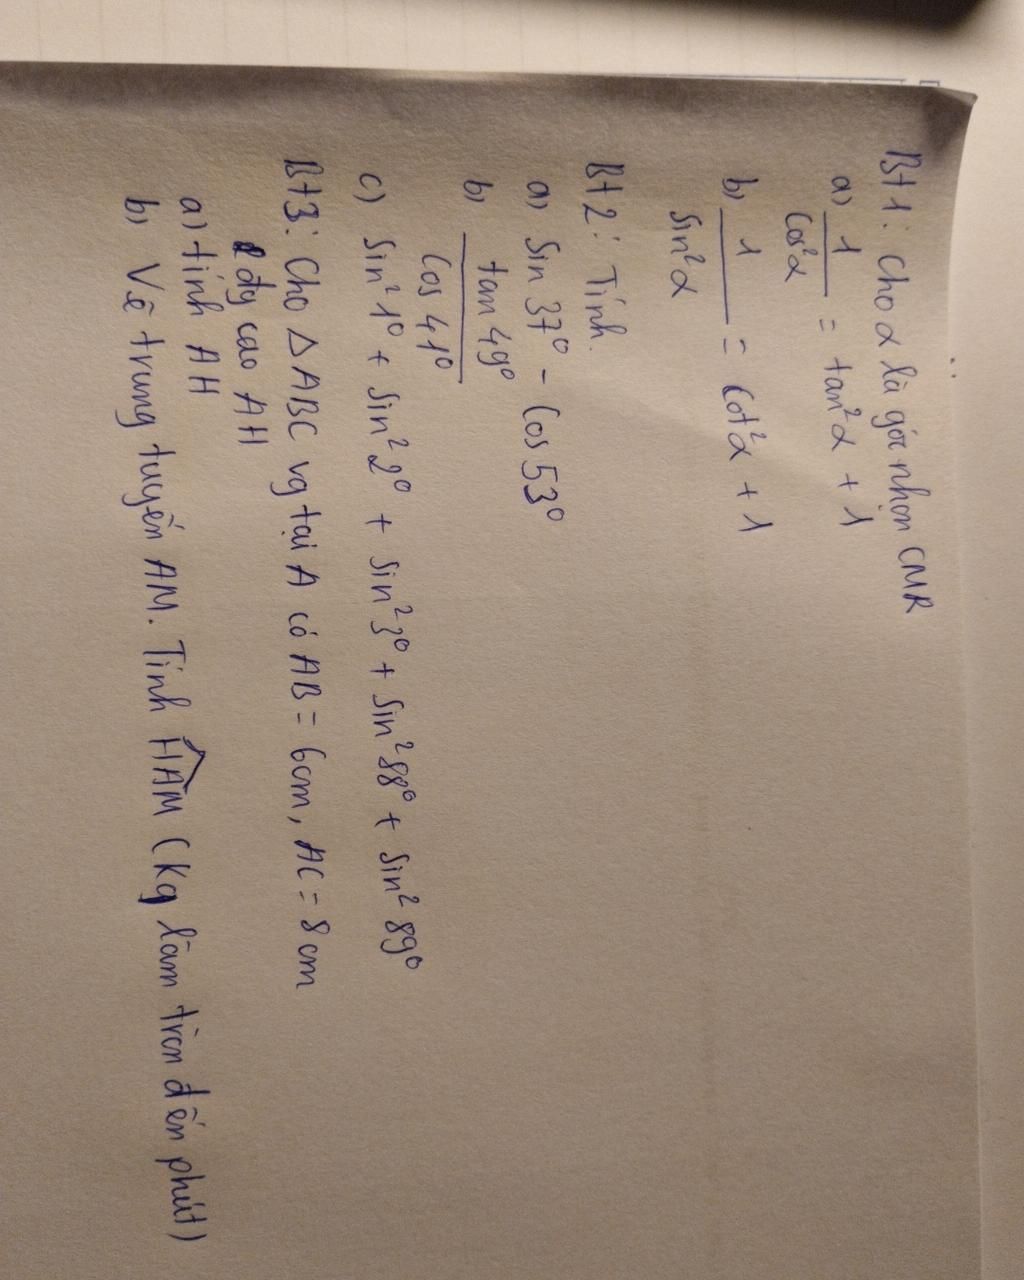 Bt1: Cho α là góc nhọn CMR
a) 1/cos²α = tan²α + 1
b) 1/sin²α = cot²α + 1
Bt2: Tính.
a) sin 37° - cos 53°
b) tan 49°/cos 41°
c) sin²1° + sin²2° + sin²3° + sin²88° + sin²89°
Bt3: Cho △ABC vg tại A có AB = 6cm, AC = 8cm
đg cao AH
a) tính AH
b) Vẽ trung tuyến AM. Tính HAM (Kq làm tròn đến phút)